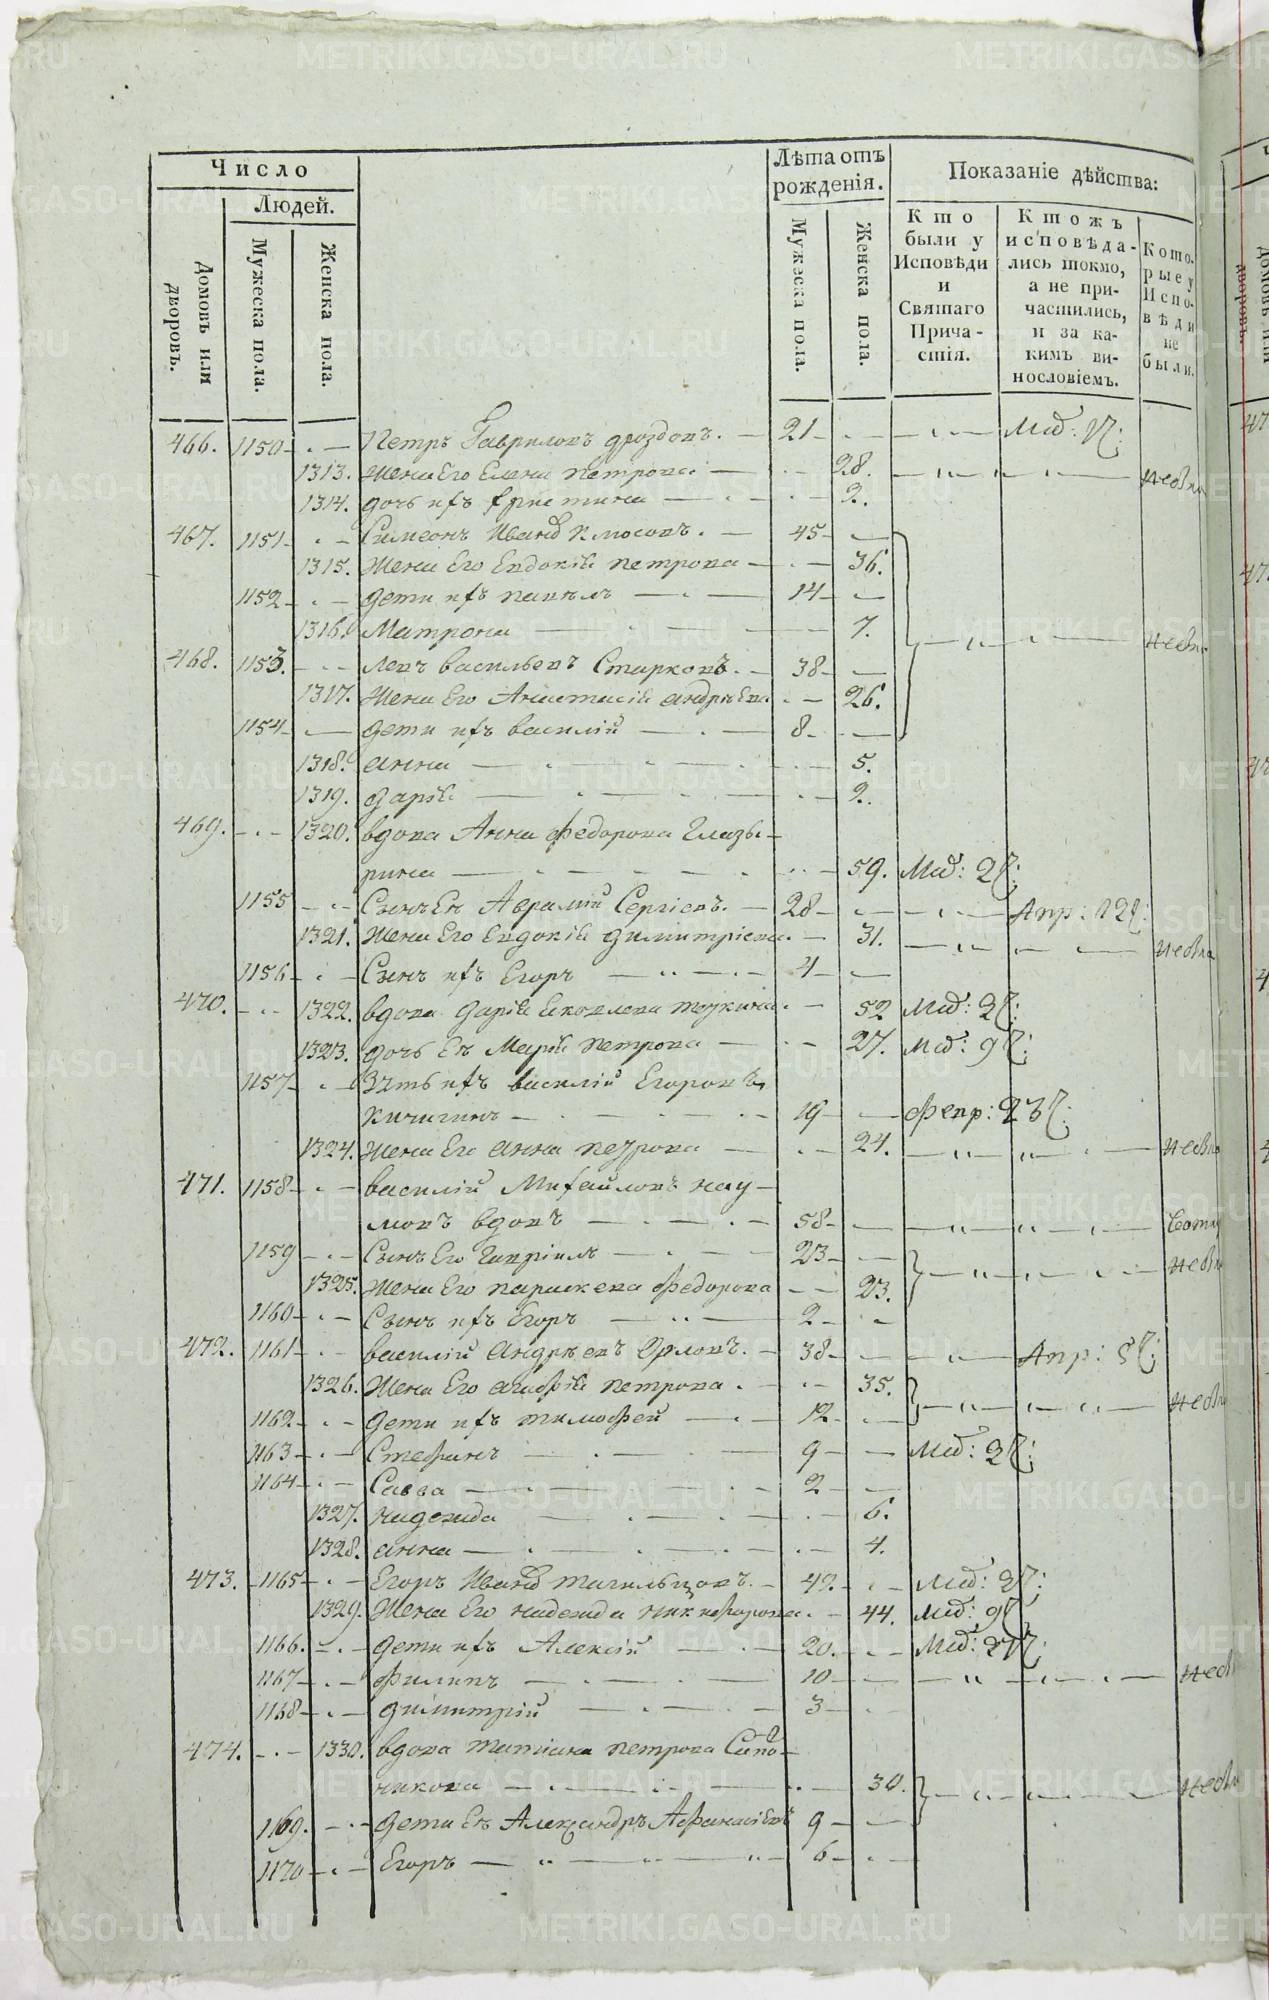 Число
Людей.
Домовъ или дворовъ.
Мужеска пола.
Женска пола.
Лѣта отъ рожденія.
Мужеска пола.
Женска пола.
Показаніе дѣйства:
Кто были у Исповѣди и Святаго Причастія.
Ктожъ исповѣдались токмо, а не причастились, и за какимъ винословіемъ.
Которые у Исповѣди не были.
466. 1150 Петръ Гавриловъ Дроздовъ. 21
1313. Жена Его Елена Петрова 28.
1314. Дочь ихъ Христина 2.
467. 1151 Симеонъ Иванов 45
1315. Жена Его Евдокія Петрова 36.
1152 Дети ихъ Павелъ 14
1316. Матрона 7.
468. 1153. Левъ Васильевъ Старковъ. 38
1317. Жена Его Анастасія Андрѣева 26.
1154 Дети ихъ Василій 8
1318. Анна 5.
1319. Дарія 2.
469. 1320. Вдова Анна Федорова Глазы-
рина 59. Мар: 2
1155 Сынъ Ея Аврамій Сергіевъ. 28 Апр: 12
1321. Жена Его Евдокія Димитріева 31.
1156 Сынъ ихъ Егоръ 4
470. 1322. Вдова Дарія Яковлева 52 Мар: 2
1323. Дочь Ея Марія Петрова 27. Мар: 9
1157 Зять ихъ Василій Егоровъ
Кичигинъ 19 Февр: 23
1324. Жена Его Анна Петрова 24.
471. 1158 Василій Михайловъ Нау-
мовъ вдовъ 58
1159 Сынъ Его Гавріилъ 23
1325. Жена Его Параскева Федорова 23.
1160 Сынъ ихъ Егоръ 2
472. 1161 Василій Андрѣевъ Орловъ. 38 Апр: 5
1326. Жена Его Агафія Петрова 35.
1162 Дети ихъ Тимофей 12
1163 Стефанъ 9 Мар: 2
1164 Савва 2
1327. Надежда 6.
1328. Анна 4.
473. 1165 Егоръ Иванов Тагильцовъ. 42 Мар:
1329. Жена Его Надежда Никифорова 44. Мар: 9
1166. Дети ихъ Алексій 20. Мар:
1167 Филипъ 10
1168 Димитрій 3
474. 1330. Вдова Татіана Петрова Сапо-
никова 30.
1169. Дети Ея Александръ Афанасіевъ 9
1170 Егоръ 6
METRIKI.GASO-URAL.RU